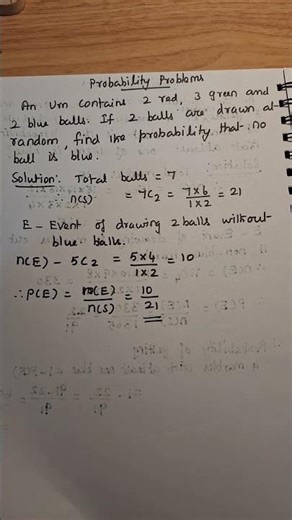 Probability Problems
An Urn contains 2 red, 3 green and
2 blue balls. If 2 balls are drawn at
random, find the probability that no
ball is blue.
Solution: Total balls = 7
n(S) = 7C2 = 7x6/1x2 = 21
E - Event of drawing 2 balls without
blue balls.
n(E) - 5C2 = 5x4/1x2 = 10
∴ P(E) = n(E)/n(S) = 10/21